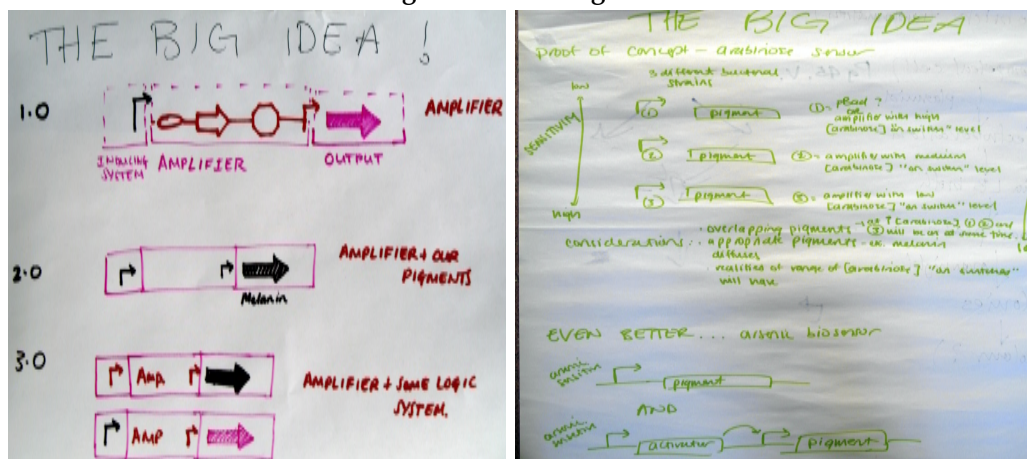 THE BIG IDEA !
1.0
AMPLIFIER
INDUCING
SYSTEM
AMPLIFIER
OUTPUT
2.0
AMPLIFIER + OUR
PIGMENTS
Melanin
3.0
Amp.
AMPLIFIER + SOME LOGIC
SYSTEM.
AMP
THE BIG IDEA
proof of concept - arabinose sensor
3 different bacterial
strains
low
SENSITIVITY
high
① pigment ① = pBad ?
or
amplifier with high
[arabinose] "on switch" level
② pigment ② = amplifier with medium
[arabinose] "on switch" level
③ pigment ③ = amplifier with low
[arabinose] "on switch" level
considerations...
· overlapping pigments → at ↑ [arabinose] ① ② and
③ will be on at same time.
· appropriate pigments - ex. melanin
diffuses
· realities of range of [arabinose] "on switches"
will have
EVEN BETTER... arsenic biosensor
arsenic
sensitive
pigment
AND
arsenic
sensitive
activator
pigment